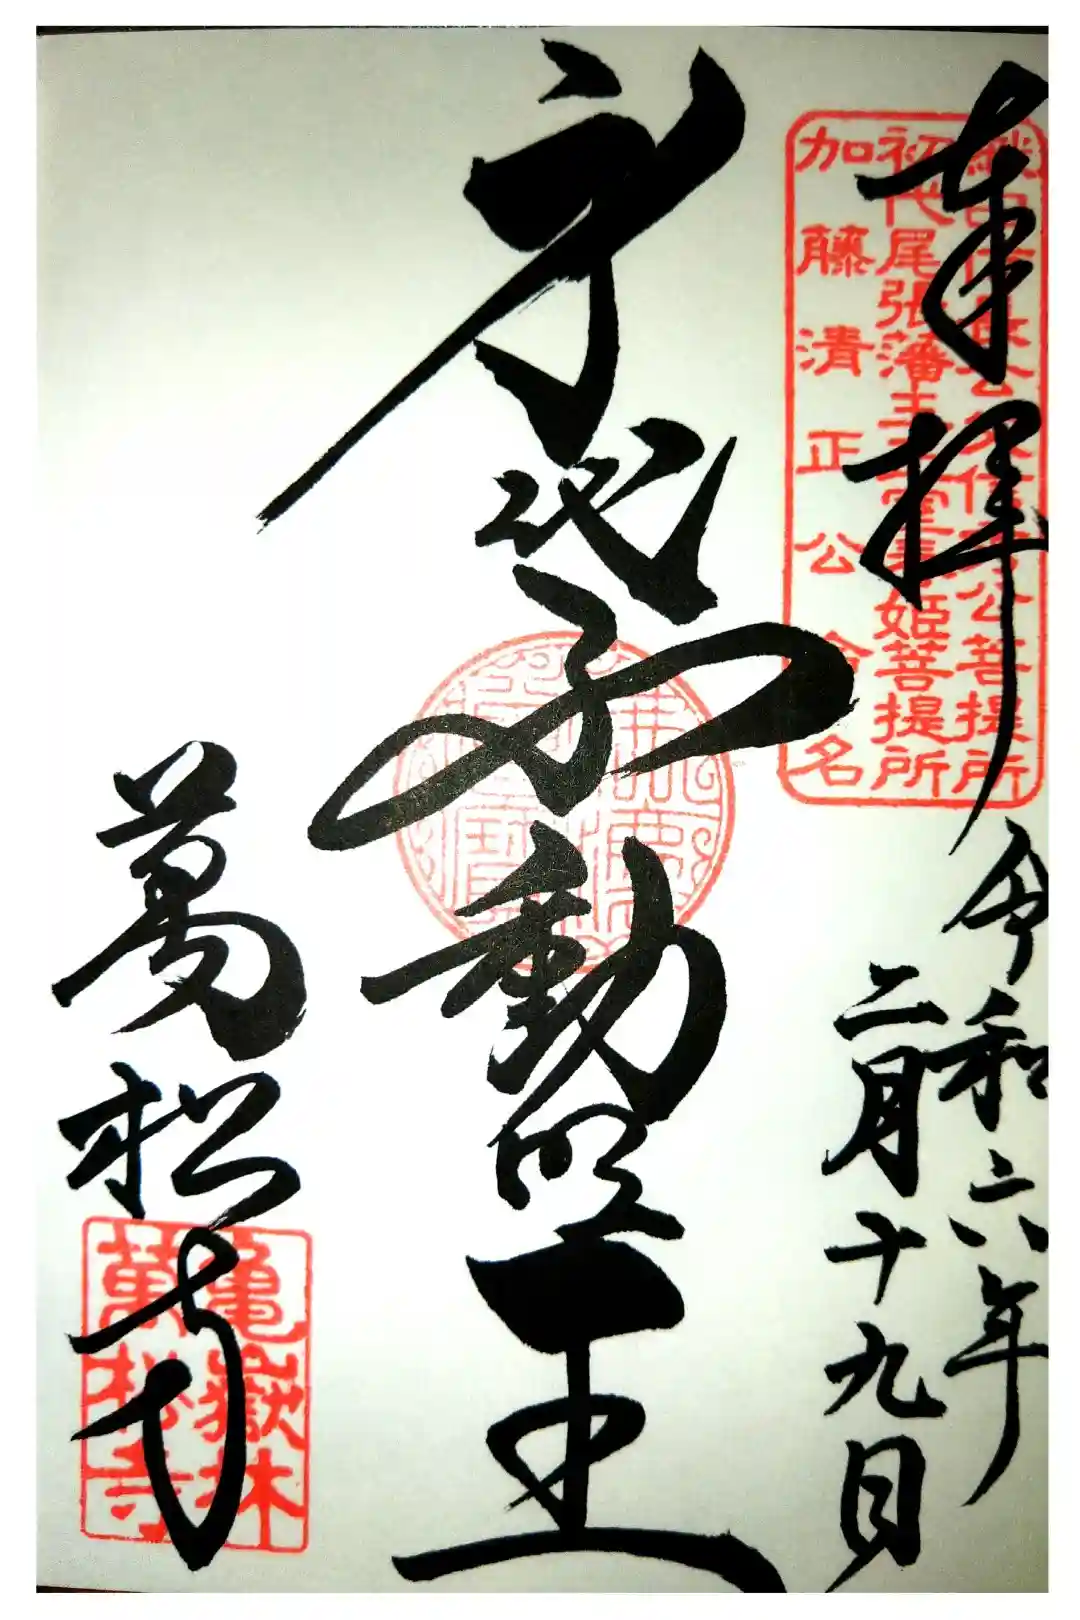 奉拝
令和六年
二月十九日
身代不動明王
萬松寺
織田信長公父信秀公菩提所
初代尾張藩主正室春姫菩提所
加藤清正公命名
佛法僧寶
亀嶽林
萬松寺